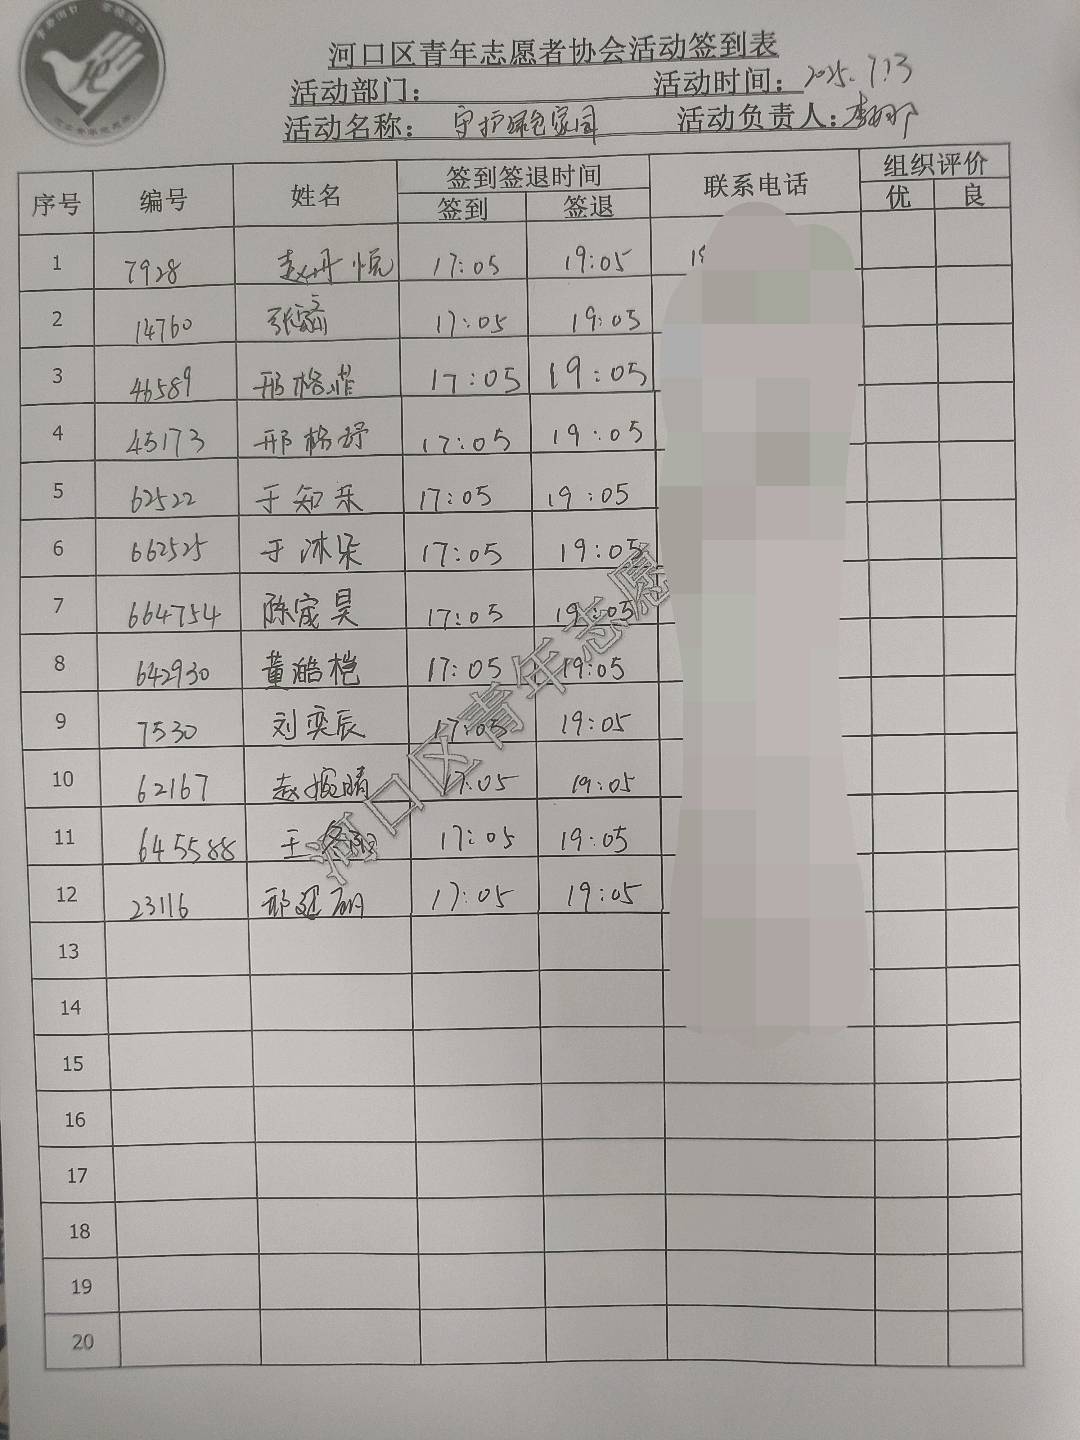 河口区青年志愿者协会活动签到表
活动部门： 活动时间：2025.7.13
活动名称： 守护绿色家园 活动负责人：李
序号 编号 姓名 签到签退时间 联系电话 组织评价
签到 签退 优 良
1 7928 赵丹悦 17:05 19:05 19
2 14760 张 17:05 19:05
3 46589 邢格菲 17:05 19:05
4 45173 邢格妤 17:05 19:05
5 62522 于知乐 17:05 19:05
6 662525 于沐朵 17:05 19:05
7 664754 陈宬昊 17:05 19:05
8 642930 董澔桤 17:05 19:05
9 7530 刘奕辰 17:05 19:05
10 62167 赵婉晴 17:05 19:05
11 645588 王 17:05 19:05
12 23116 邢 17:05 19:05
13
14
15
16
17
18
19
20
河口区青年志愿